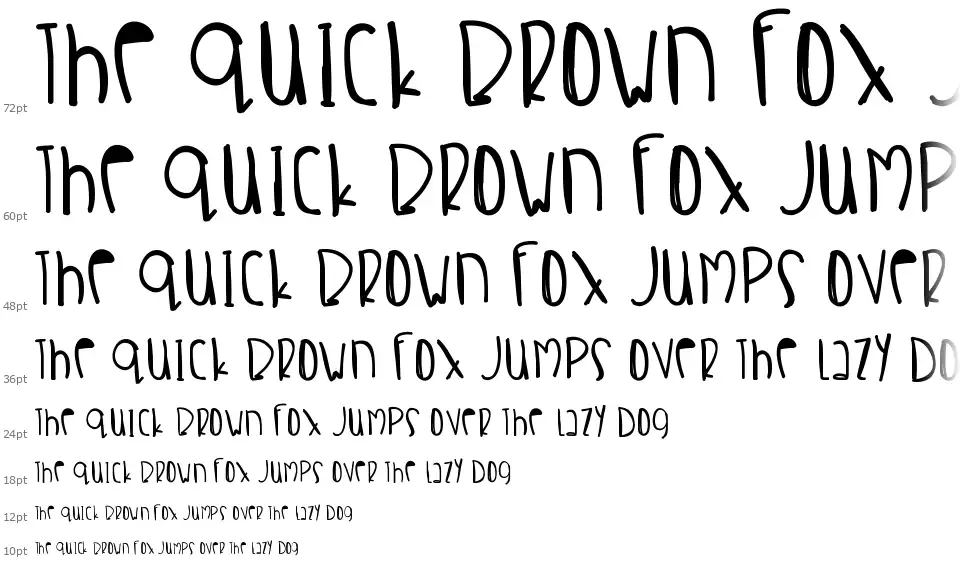 72pt The quick brown fox J
60pt The quick brown fox jump
48pt The quick brown fox jumps over
36pt The quick brown fox jumps over the lazy do
24pt The quick brown fox jumps over the lazy dog
18pt The quick brown fox jumps over the lazy dog
12pt The quick brown fox jumps over the lazy dog
10pt The quick brown fox jumps over the lazy dog